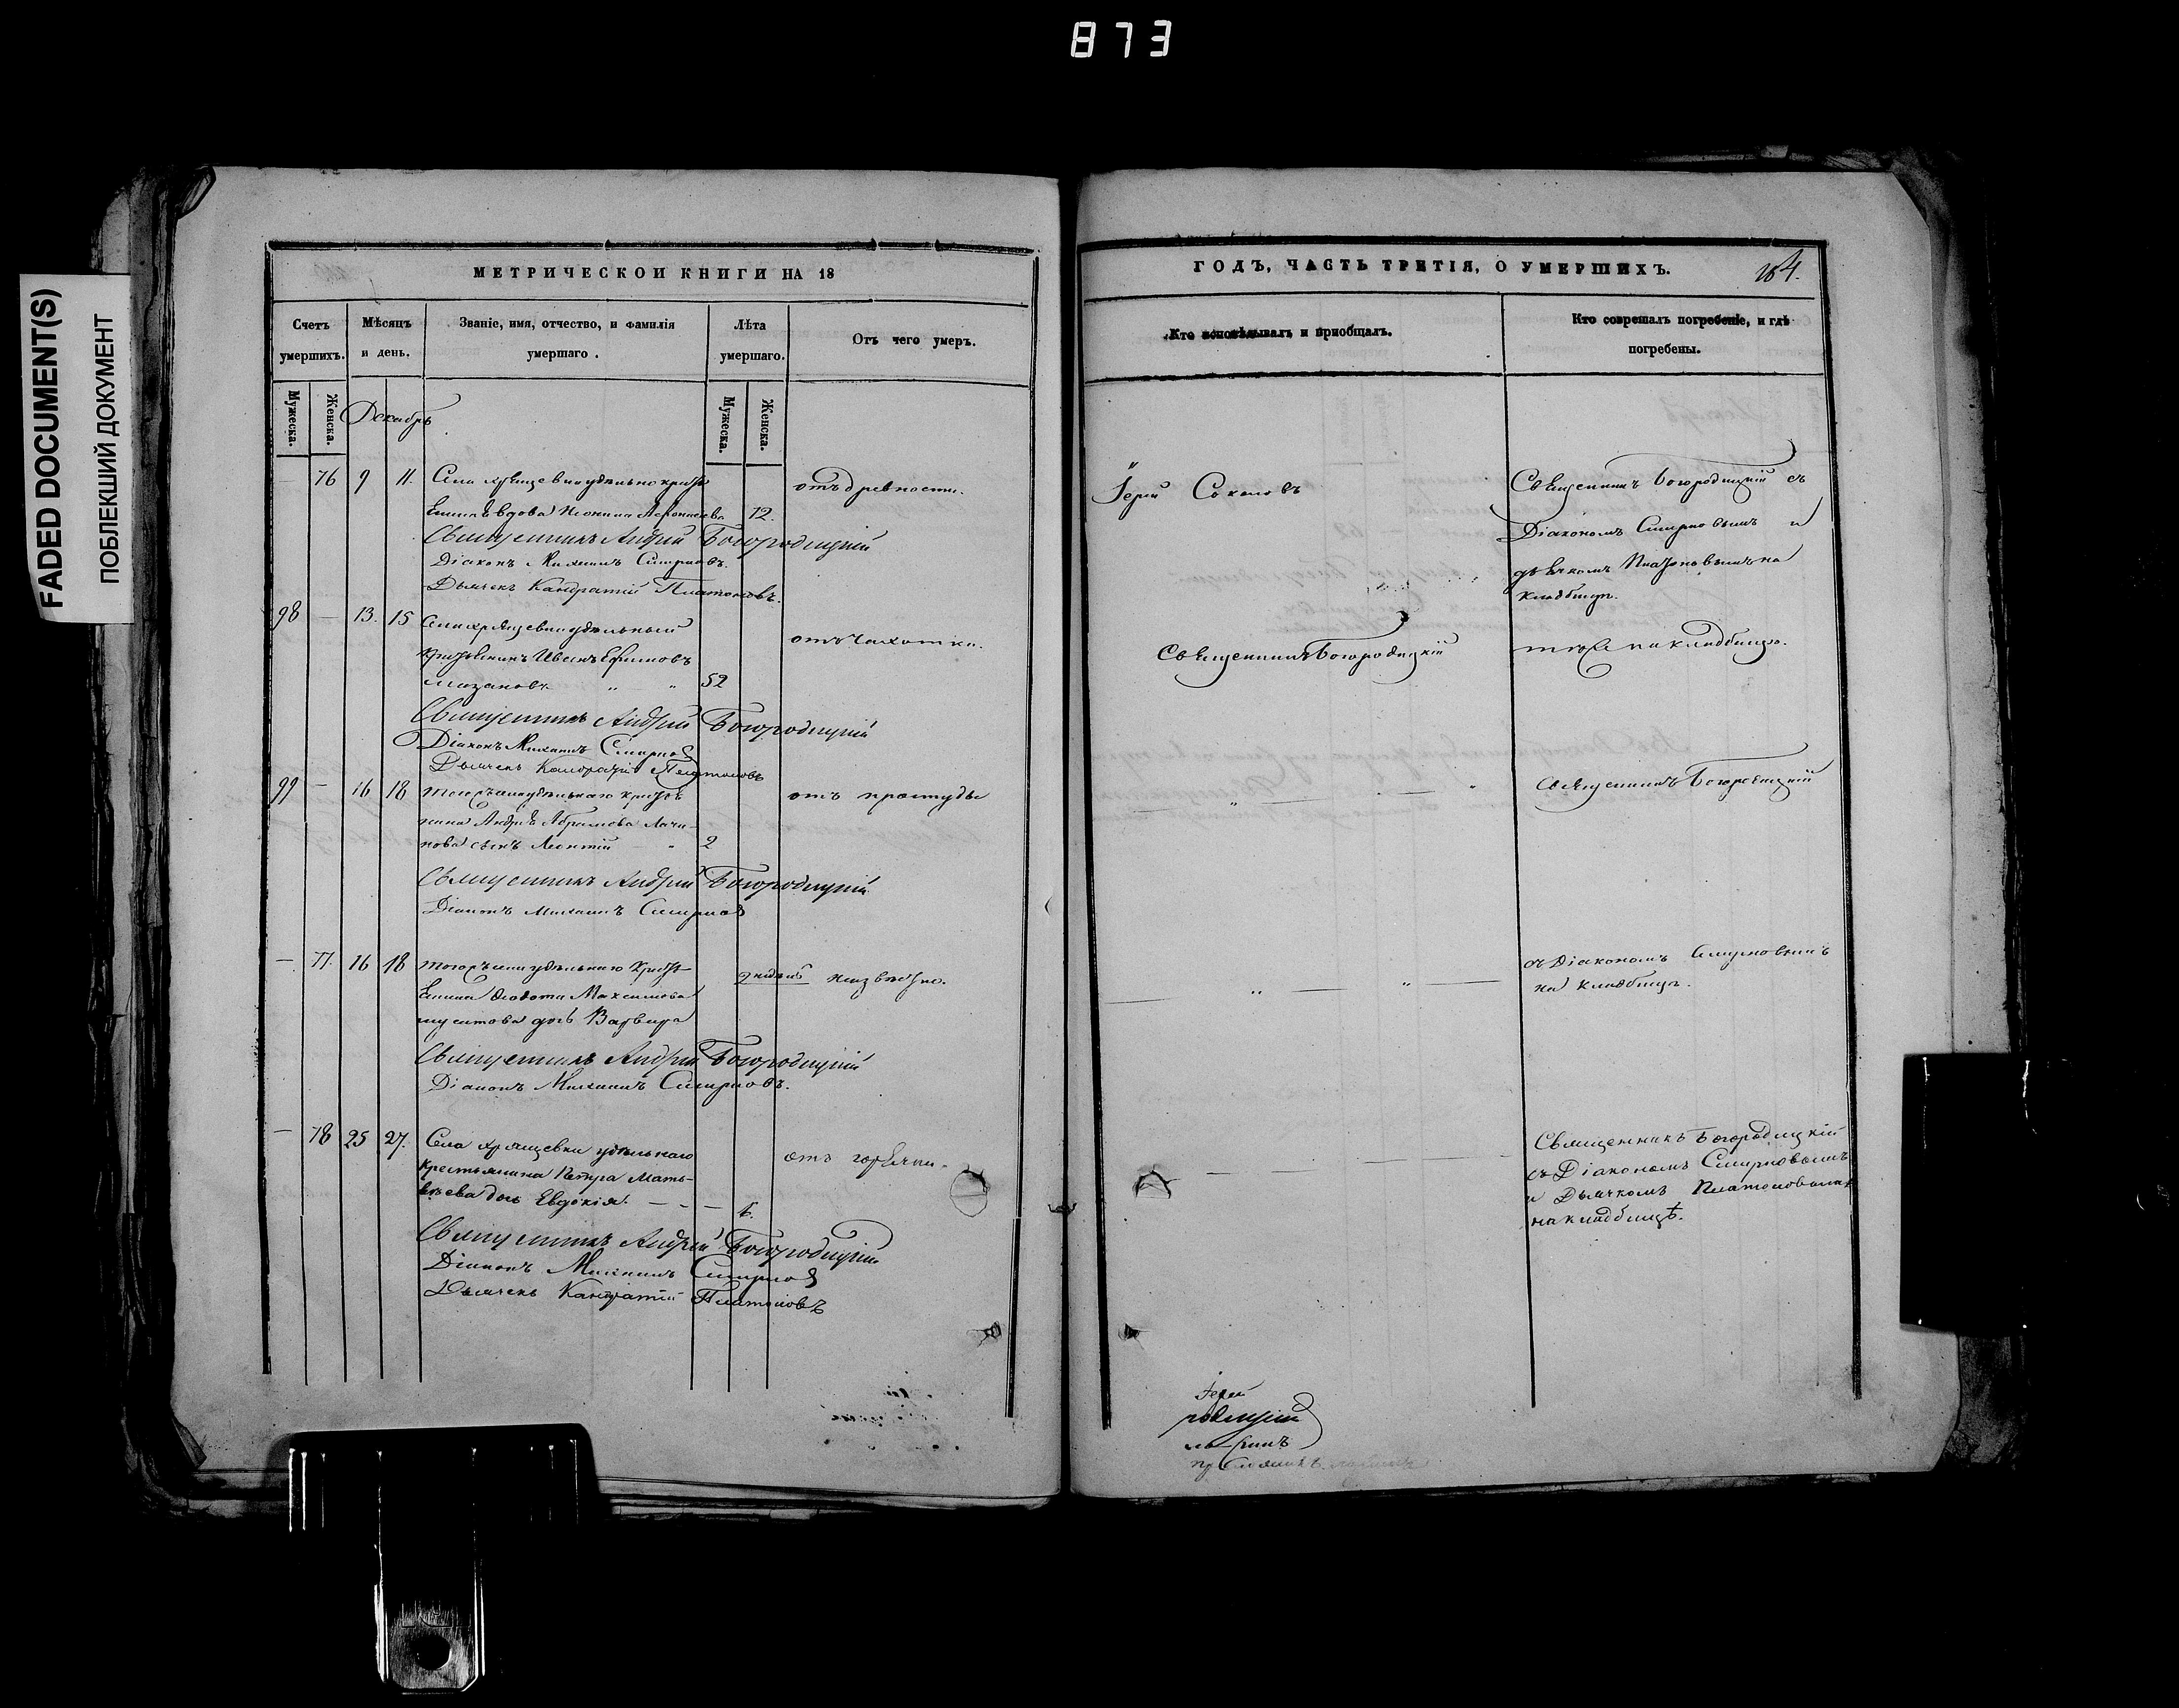 873
FADED DOCUMENT(S)
ПОБЛЕКШИЙ ДОКУМЕНТ
МЕТРИЧЕСКОЙ КНИГИ НА 18
Счетъ умершихъ.
Мѣсяцъ и день.
Званіе, имя, отчество, и фамилія умершаго.
Лѣта умершаго.
Отъ чего умеръ.
Мужеска.
Женска.
Мужеска.
Женска.
Декабрь
76 9 11. Села
вдова 72. отъ древности.
Священникъ Андрей Богородицкій
Діаконъ Михаилъ Смирновъ.
Дьячекъ Кандратій Платоновъ.
98 — 13. 15 удѣльный
Иванъ Ефимовъ отъ чахотки.
52
Священникъ Андрей Богородицкій
Діаконъ Михаилъ Смирнов
Дьячекъ Кандратій Платоновъ
99 — 16 18 тогожъ села удѣльнаго отъ простуды
Андрея Абрамова
сынъ Леонтій 2
Священникъ Андрей Богородицкій
Діаконъ Михаилъ Смирнов
— 77. 16 18 тогожъ села удѣльнаго 2 недѣль неизвѣстно.
Максимова
дочь Варвара
Священникъ Андрей Богородицкій
Діаконъ Михаилъ Смирновъ.
— 78 25 27. Села хрящевки удѣльнаго отъ горячки.
крестьянина Петра Мать-
вѣева дочь Евдокія.
Священникъ Андрей Богородицкій
Діаконъ Михаилъ Смирнов
Дьячекъ Кандратій Платоновъ
ГОДЪ, ЧАСТЬ ТРЕТІЯ, О УМЕРШИХЪ.
Кто исповѣдывалъ и пріобщалъ.
Кто совершалъ погребеніе, и гдѣ погребены.
Іерей Соколовъ
Священникъ Богородицкій съ
Діакономъ Смирновымъ и
дьячкомъ Платоновымъ на
кладбищѣ.
Священникъ Богородицкій
тоже на кладбищѣ.
Священникъ Богородицкій
съ Діакономъ Смирновымъ
на кладбищѣ.
Священникъ Богородицкій
съ Діакономъ Смирновымъ
и Дьячкомъ Платоновымъ
на кладбищѣ.
Іерей